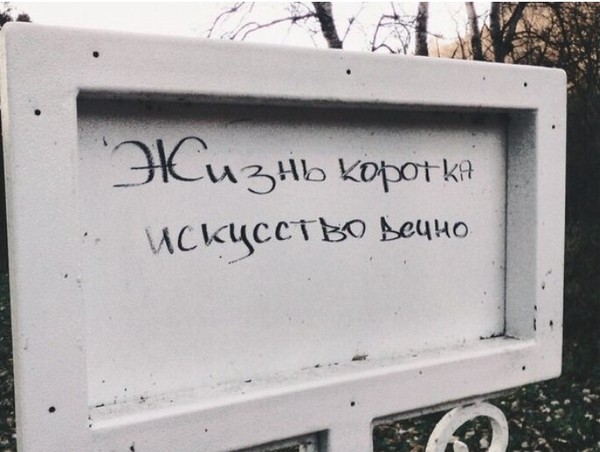 Жизнь коротка
искусство вечно